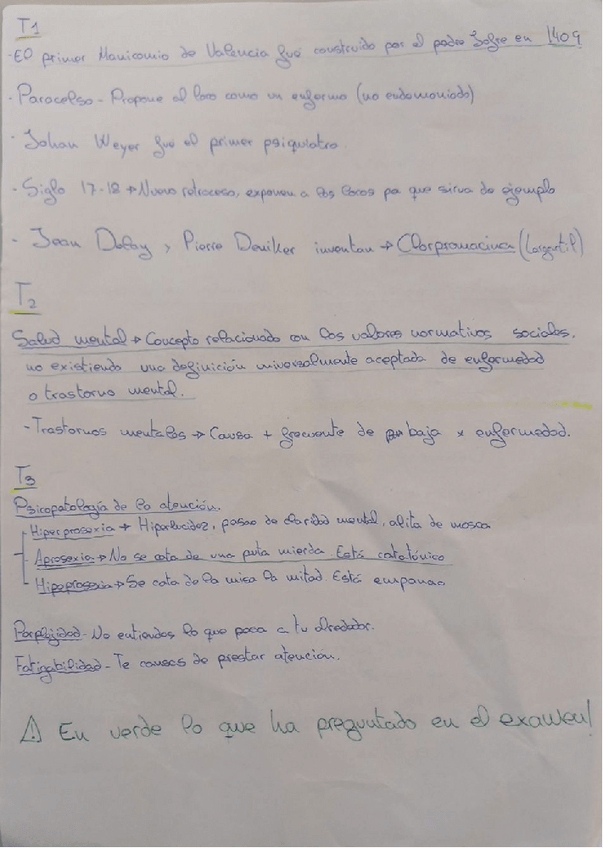 T1
·El primer Manicomio de Valencia fué construido por el padre Jofre en 1409
· Paracelso - Propone al loco como un enfermo (no endemoniado)
· Johan Weyer fue el primer psiquiatra.
· Siglo 17-18 → Nuevo retroceso, exponen a los locos pa que sirva de ejemplo
- Jean Delay y Pierre Deniker inventan → Clorpromacina (Largactil)
T2
Salud mental → Concepto relacionado con los valores normativos sociales,
no existiendo una definición universalmente aceptada de enfermedad
o trastorno mental.
- Trastornos mentales → Causa + frecuente de baja x enfermedad.
T3
Psicopatología de la atención.
Hiperprosexia → Hiperlucidez, pasao de claridad mental, alita de mosca
Aprosexia → No se cata de una puta mierda Está catatónico
Hipoprosexia → Se cata de la misa la mitad Está empanao
Perplejidad - No entiendes lo que pasa a tu alrededor.
Fatigabilidad - Te cansas de prestar atención.
⚠ En verde lo que ha preguntado en el examen!